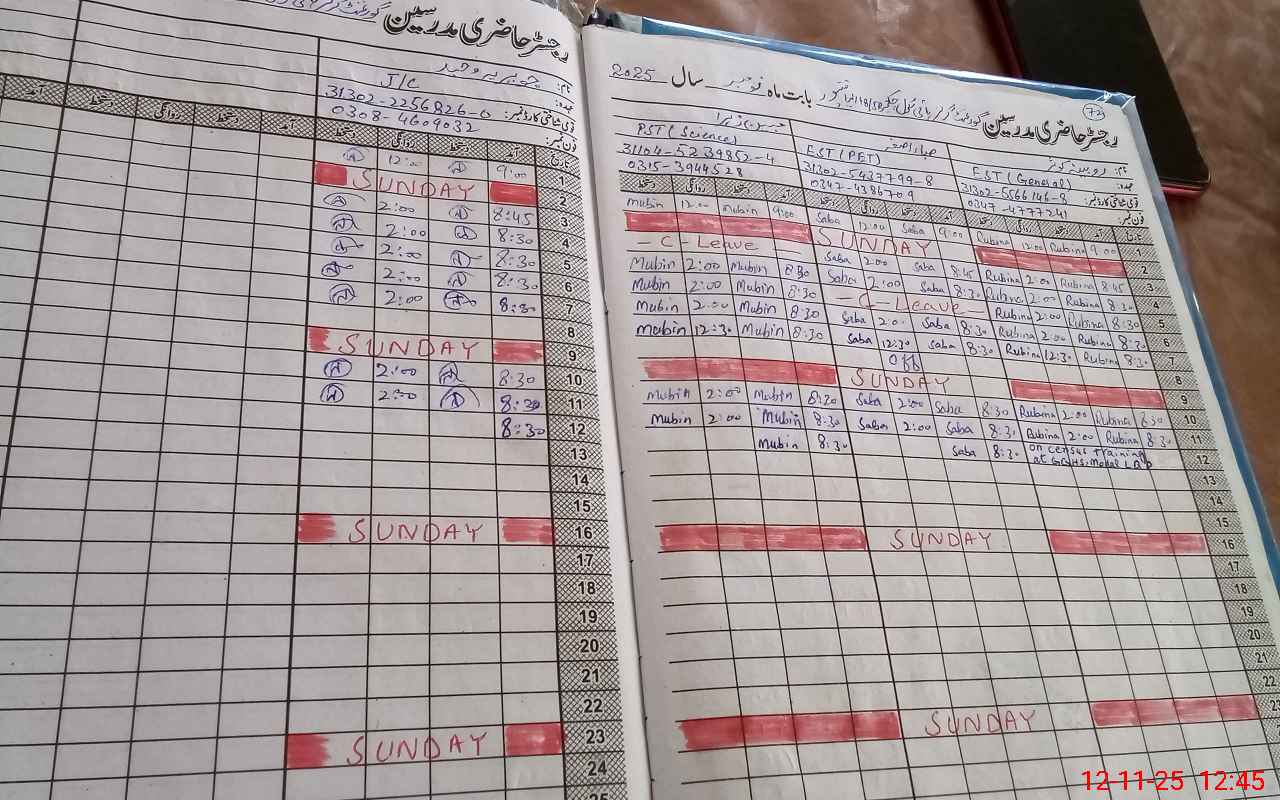 رجسٹر حاضری مدرسین
نام:
عہدہ: J/C
قومی شناختی کارڈ نمبر: 31302-2256826-0
فون نمبر: 0308-4609032
تاریخ آمد دستخط روانگی دستخط آمد دستخط روانگی دستخط آمد
1 9:00 12:00
2 SUNDAY
3 8:45 2:00
4 8:30 2:00
5 8:30 2:00
6 8:30 2:00
7 8:30 2:00
8
9 SUNDAY
10 8:30 2:00
11 8:30 2:00
12 8:30
13
14
15
16 SUNDAY
17
18
19
20
21
22
23 SUNDAY
24
25
73
رجسٹر حاضری مدرسین بابت ماہ نومبر سال 2025
نام: روبینہ کوثر صباء اصغر
عہدہ: EST (General) EST (PET) PST (Science)
قومی شناختی کارڈ نمبر: 31302-5566146-8 31302-5437799-8 31104-5239852-4
فون نمبر: 0347-4777241 0347-4386709 0315-3944528
تاریخ آمد دستخط روانگی دستخط آمد دستخط روانگی دستخط آمد دستخط روانگی دستخط
1 9:00 Rubina 12:00 Rubina 9:00 Saba 12:00 Saba 9:00 Mubin 12:00 Mubin
2 SUNDAY
3 8:45 Rubina 2:00 Rubina 8:45 Saba 2:00 Saba - C - Leave -
4 8:30 Rubina 2:00 Rubina 8:30 Saba 2:00 Saba 8:30 Mubin 2:00 Mubin
5 8:30 Rubina 2:00 Rubina - C - Leave - 8:30 Mubin 2:00 Mubin
6 8:30 Rubina 2:00 Rubina 8:30 Saba 2:00 Saba 8:30 Mubin 2:00 Mubin
7 8:30 Rubina 12:30 Rubina 8:30 Saba 12:30 Saba 8:30 Mubin 12:30 Mubin
8 Off
9 SUNDAY
10 8:30 Rubina 2:00 Rubina 8:30 Saba 2:00 Saba 8:30 Mubin 2:00 Mubin
11 8:30 Rubina 2:00 Rubina 8:30 Saba 2:00 Saba 8:30 Mubin 2:00 Mubin
12 on census training at 8:30 Saba 8:30 Mubin
13
14
15
16 SUNDAY
17
18
19
20
21
22
23 SUNDAY
12-11-25 12:45